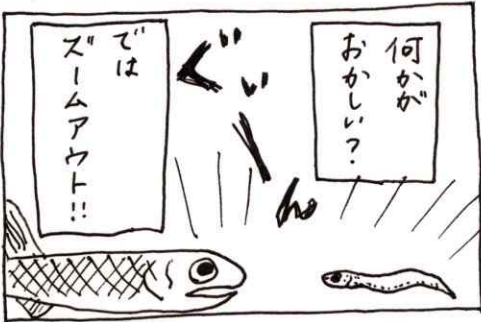 何かが
おかしい?
ぐぃーん
では
ズームアウト!!